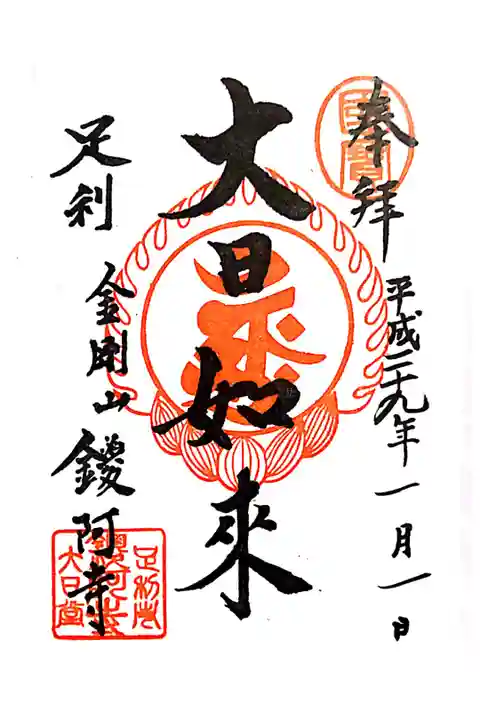 奉拝
平成二十九年一月一日
大日如来
足利
金剛山
鑁阿寺
國寳
足利市
鑁阿寺
大日堂